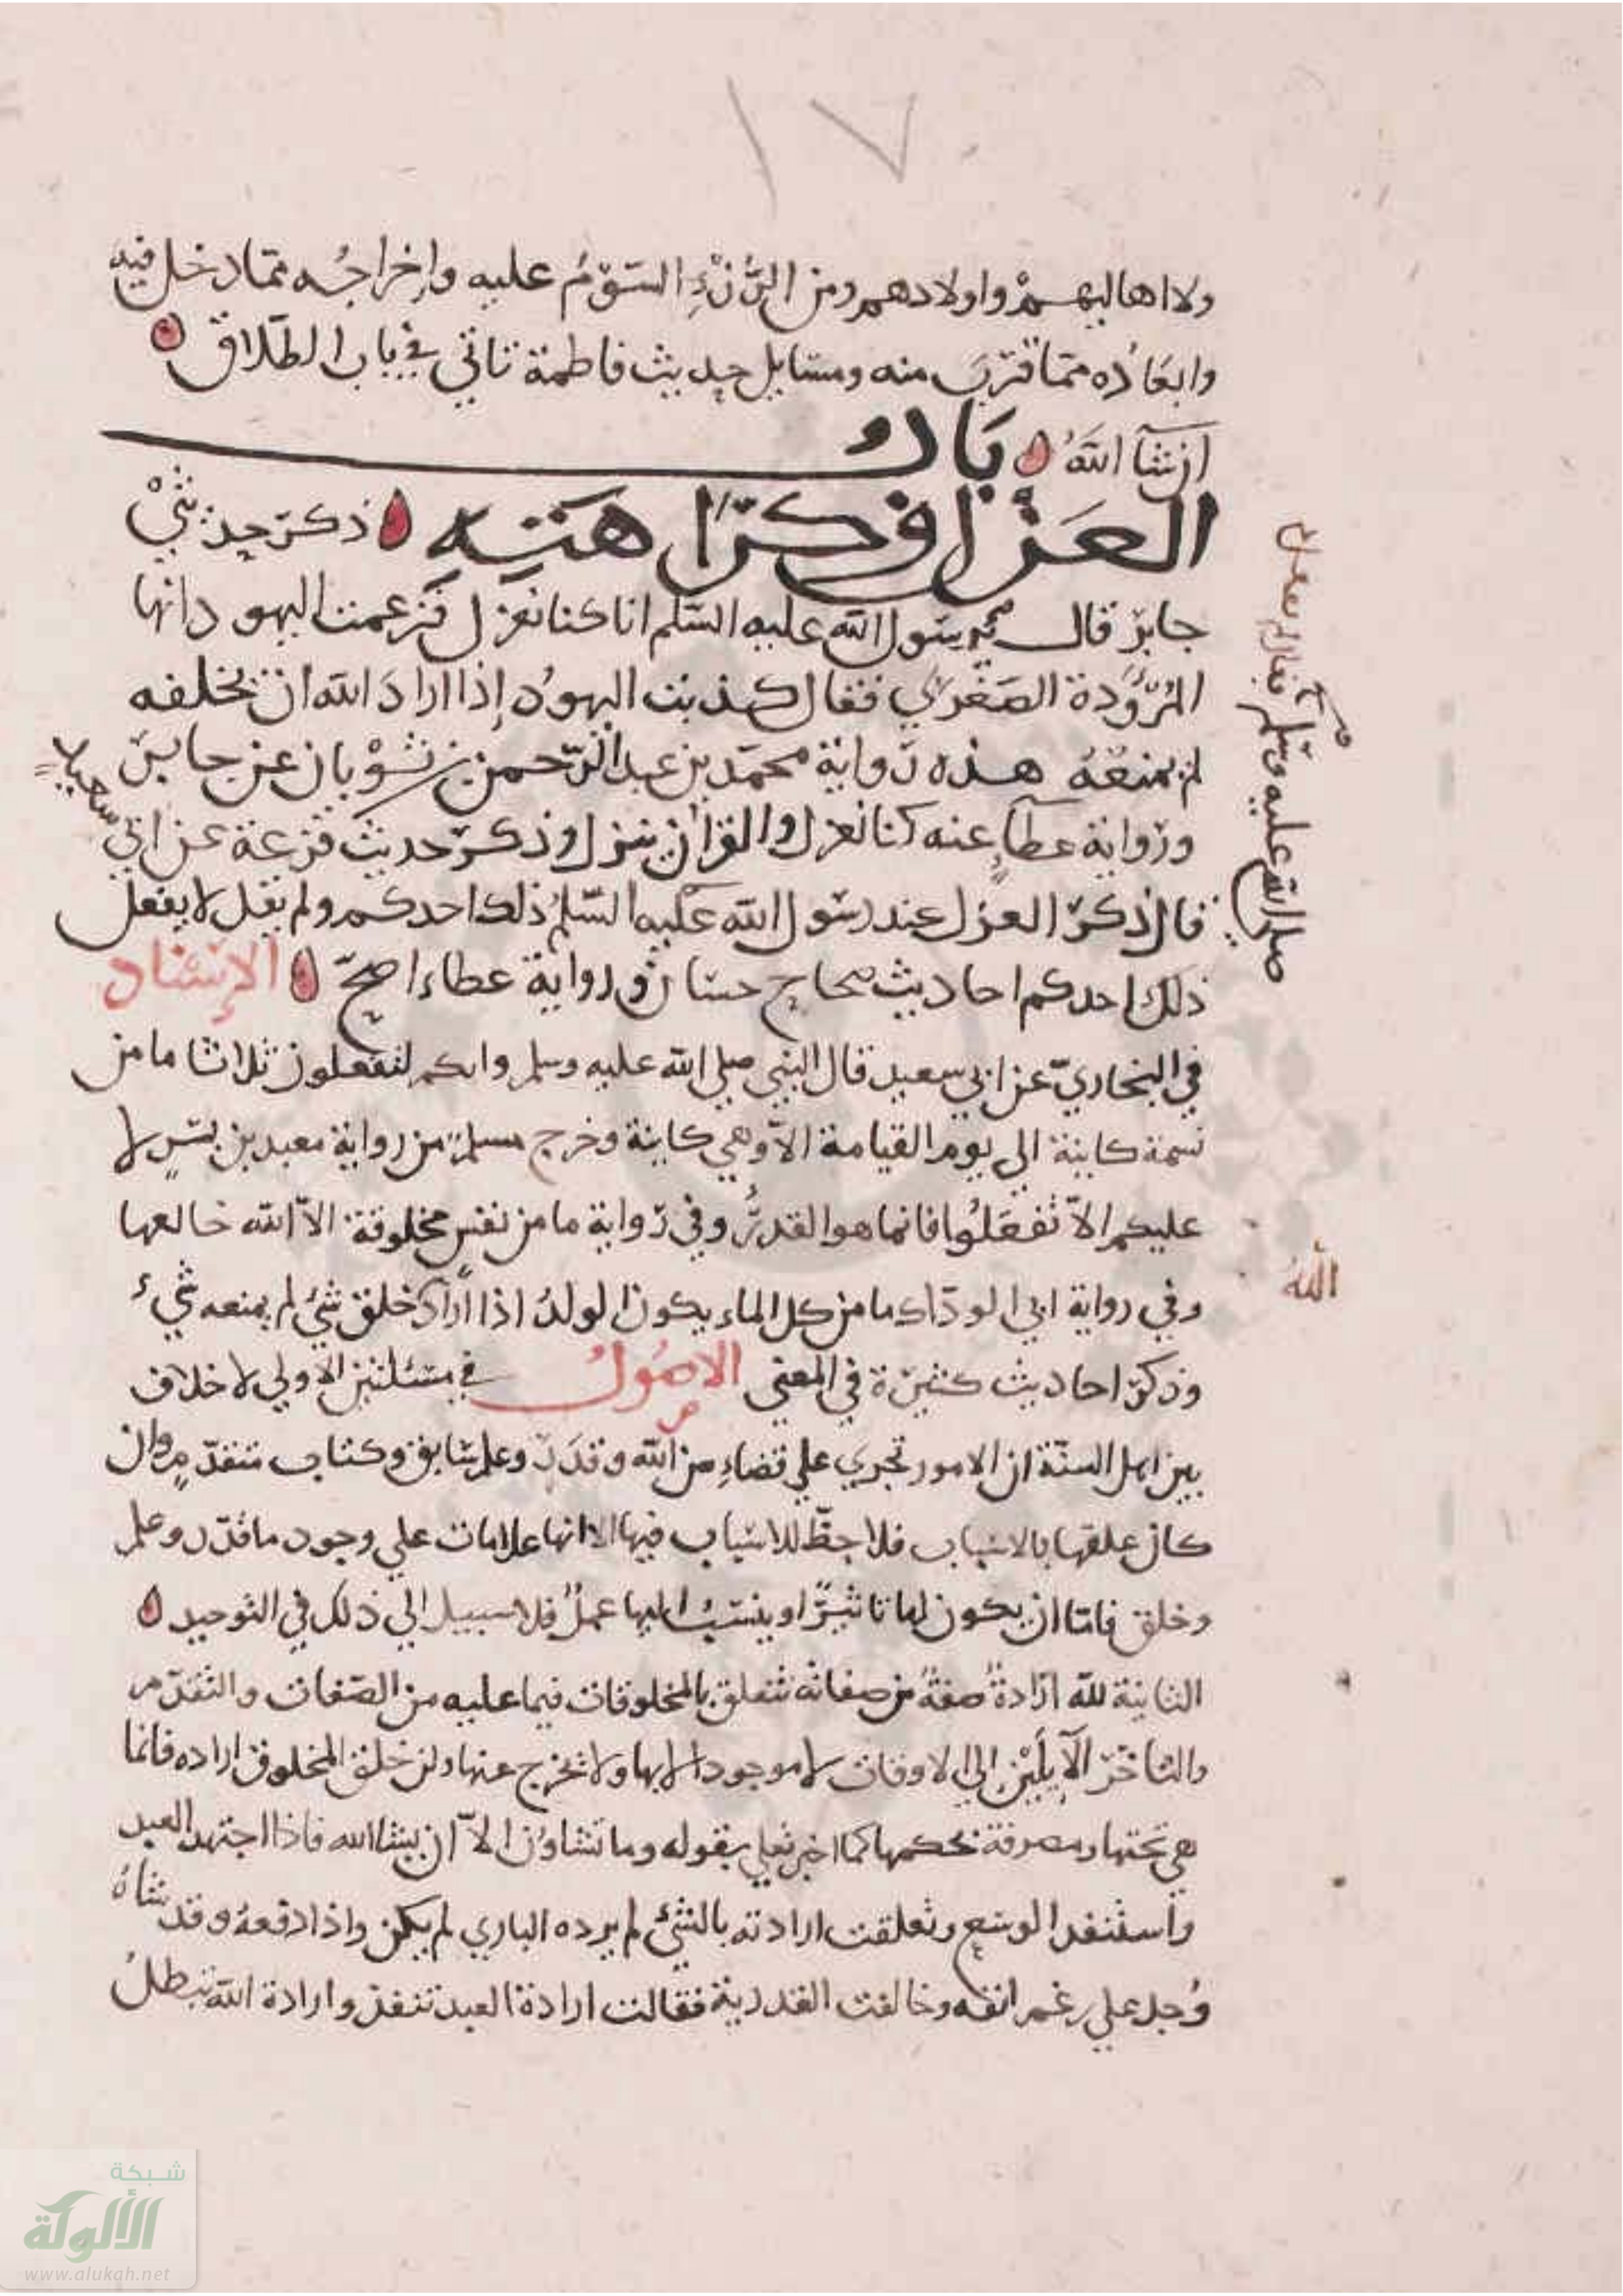 ١٧
ولا اهاليهم واولادهم ومن الرُّزْءِ السَّوْمُ عليه واِخراجُه ممّا دخل فيه
وابعَادُه ممّا قرَّبَ منه ومسَايل حديث فاطمة تاتي في باب الطّلاق
ان شآ اللهُ بَابُ
العَزْل وكرَاهَيَتِهِ ذكرَ حديثْ
جابرٍ قال يرسول الله عليه السّلم انا كنا نعزل فزعمت اليهود انها
المؤودة الصغري فقال كذبت اليهوُد إذا ارادَ الله ان يخلقه
لم يمنعْهُ هذه رواية محمّد بن عبد الرّحمن بن ثَوْبان عن جابرٍ
ورواية عطآءٍ عنه كنا نعزل والقرآن ينزل وذكر حديث قزعة عن ابي سعيد
قال ذكرَ العزل عند رسول الله عليه السّلمُ ذلك احدكم ولم يقل لا يفعل
ذلك احدكم احاديث صحاح حسان ورواية عطاء اصحّ الاِسْناد
في البخاريّ عن ابي سعيد قال النبي صلي الله عليه وسلم وانكم لتفعلون ثلاثا ما من
نسمة كاينة الي يوم القيامة الاّ وهي كاينة وخرج مسلم من رواية معبد بن بشرٍ لا
عليكم الاّ تفعَلُوا فانما هو القدرُ وفي رواية ما من نفس مخلوقة الاّ الله خالقها
وفي رواية ابي الودّاك ما من كل الماء يكون الولدُ اذا ارادَ خلق شئ لم يمنعه شيء
وذكرَ احاديث كثيرة في المعني الاصُولُ في مسئلتين الاولي لا خلاف
بين اهل السنّة ان الامور تجري علي قضاءٍ من الله وقدَرٍ وعلم سَابق وكتاب متقدّمٍ وان
كان علقها بالاسباب فلا حظّ للاسْباب فيها الا انها علامات علي وجود ما قدّر وعلم
وخلق فامّا ان يكون لها تاثيرًا او ينسَبُ اليها عملٌ فلا سبيل الي ذلك في التوحيد
الثانية لله ارادةُ صفةٌ من صفاته تتعلق بالمخلوقات فيما عليه من الصّفات والتقدّم
والتاخّر الآيلَيْن الي الاوقات لا موجود الا بها ولا تخرج عنها ولمن خلق المخلوق اراده فانما
هي تحتها ومصرفة بحكمها كما اخبر تعلي بقوله وما تشاوُن الاّ ان يشا الله فاذا اجتهد العبد
واستنفد الوسْعِ وتعلقت ارادته بالشئ لم يرده الباري لم يكن واذا دفعهُ وقد شاهُ
وُجد علي رغم انفه وخالفت القدرية فقالت ارادة العبد تنفذ وارادة الله تبطلُ
صلي الله عليه وسلم فقال لم يفعل
اللهُ
شبكة
الألوكة
www.alukah.net